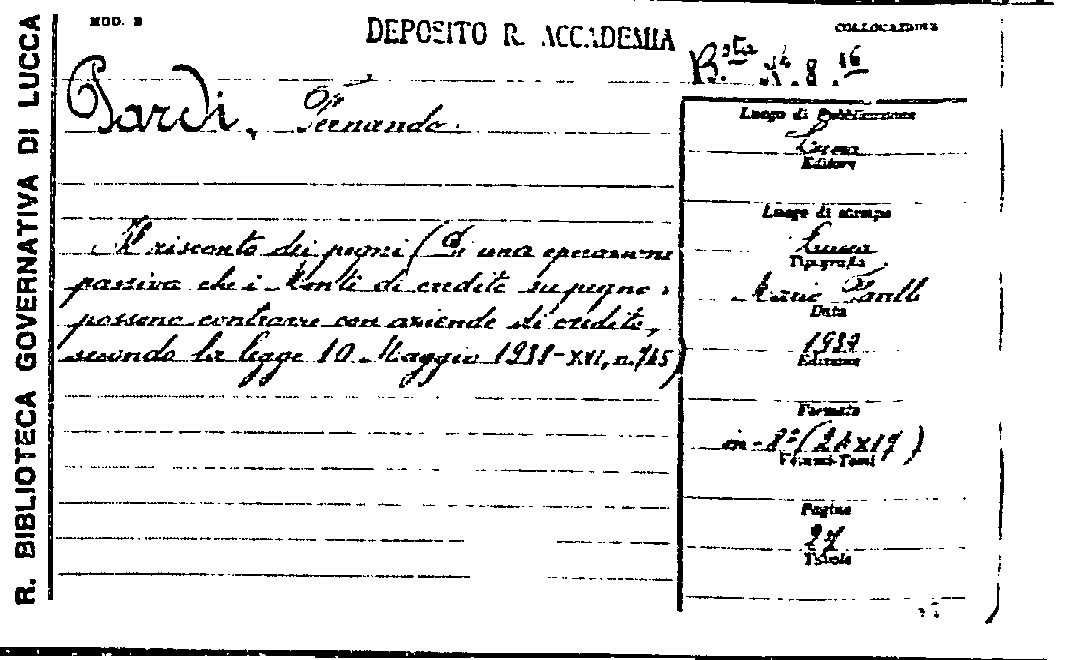 R. BIBLIOTECA GOVERNATIVA DI LUCCA
MOD. B
DEPOSITO R. ACCADEMIA
COLLOCAZIONE
B.sta 8.16
Pardi, Fernando.
Il risconto dei pegni (Di una operazione
passiva che i Monti di credito su pegno
possono contrarre con aziende di credito,
secondo la legge 10 Maggio 1938-XVI, n. 745)
Luogo di Pubblicazione
Lucca
Editore
Luogo di stampa
Lucca
Tipografia
Mario
Data
1939
Edizione
Formato
in-8° (24x17)
Volumi-Tomi
Pagine
27
Tavole